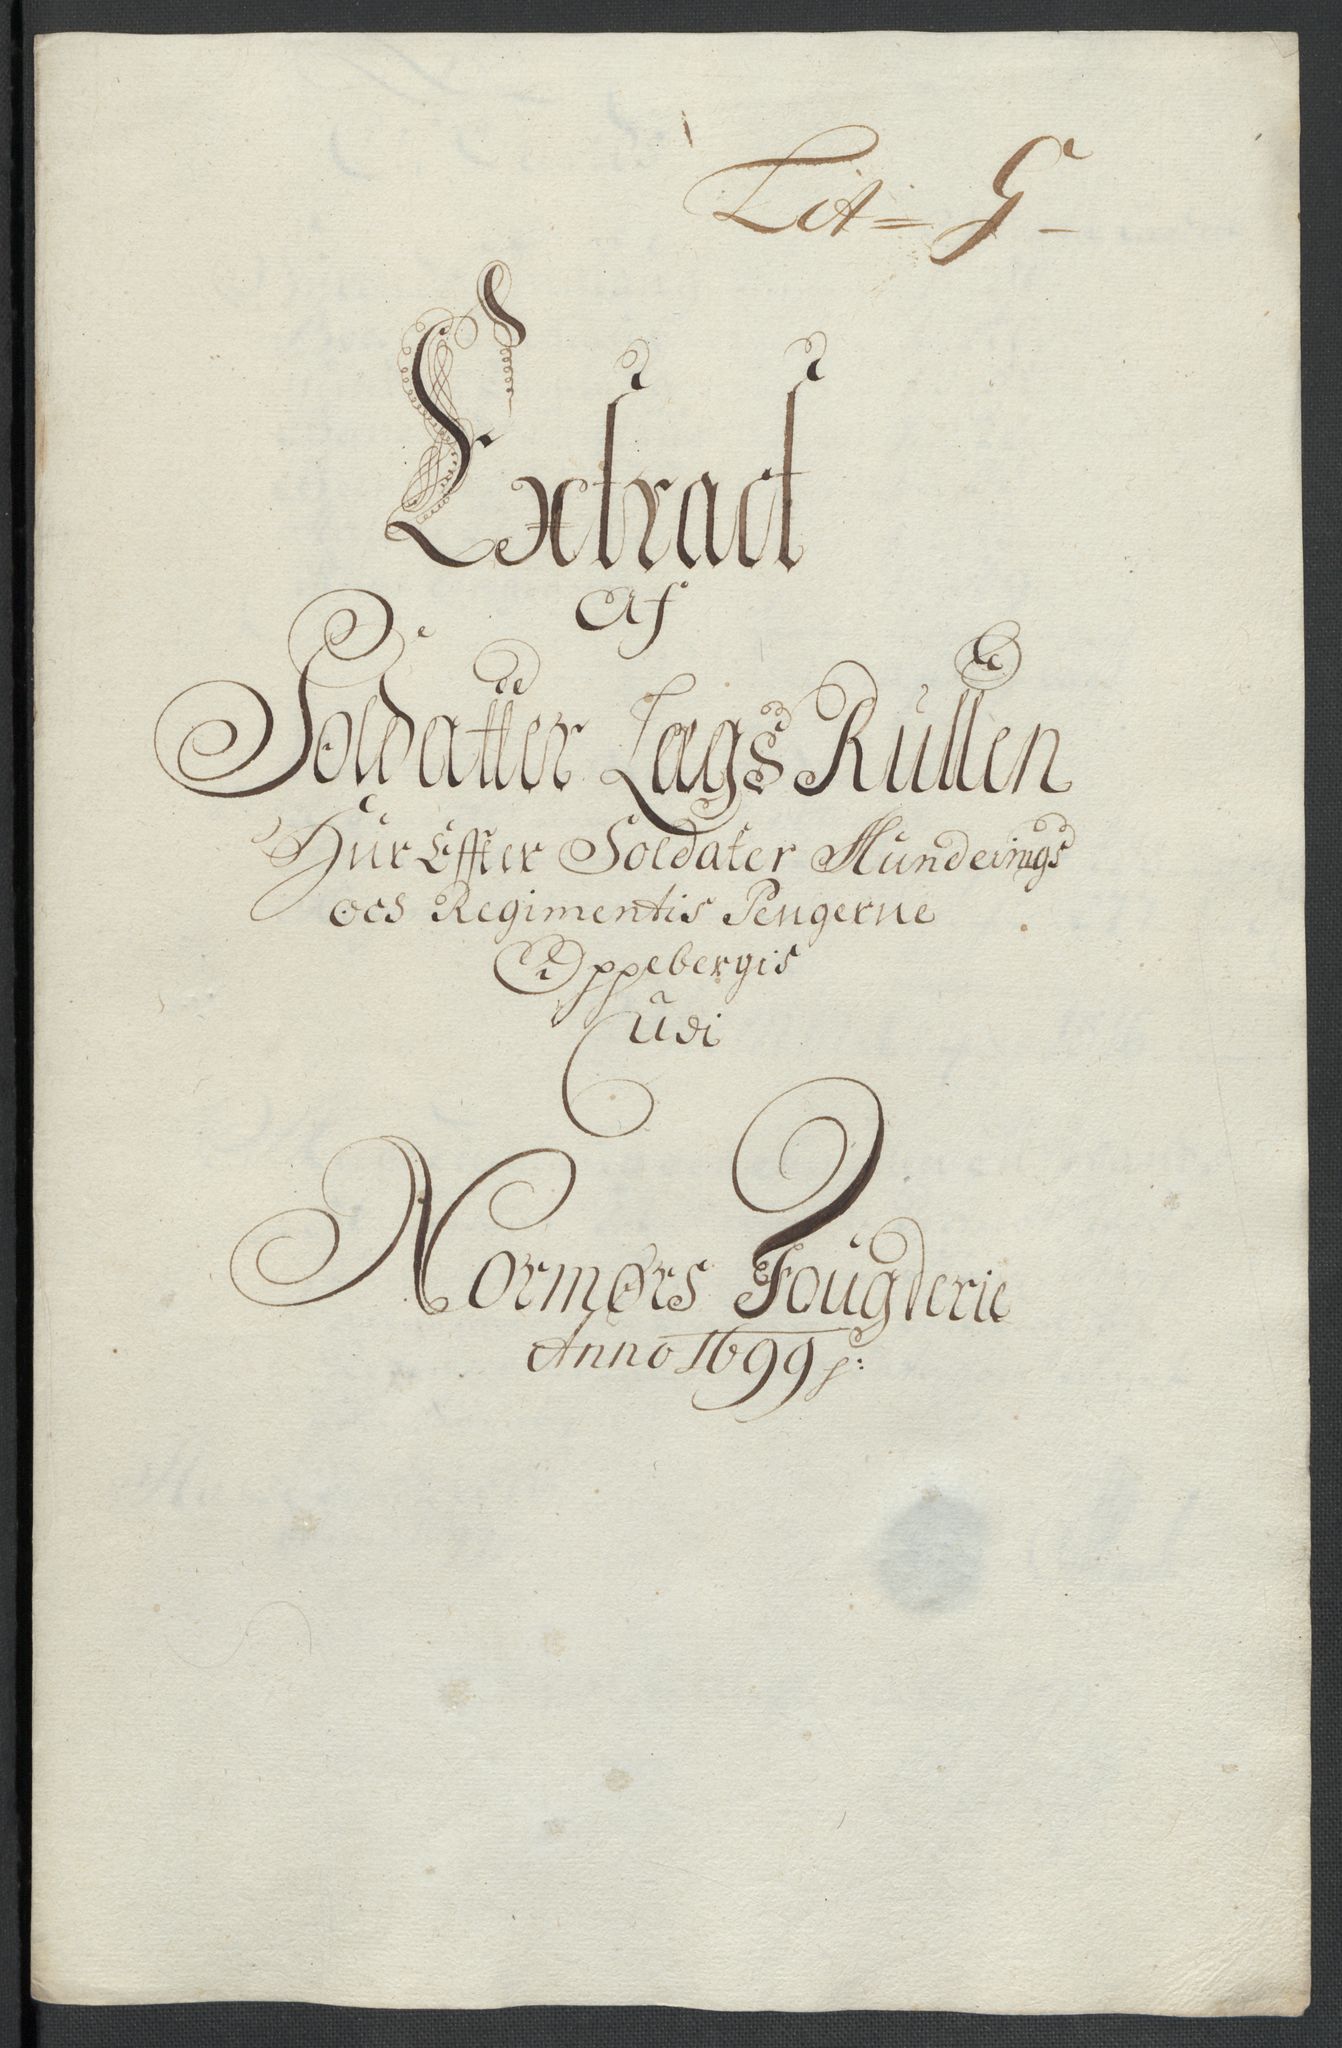 Lit = G -
Extract
Af
Soldatter Lægs Rullen
Hur Effter Soldater Munderings
och Regimentis Pengerne
Oppebergis
Udi
Normørs Fougderie
Anno 1699 /: